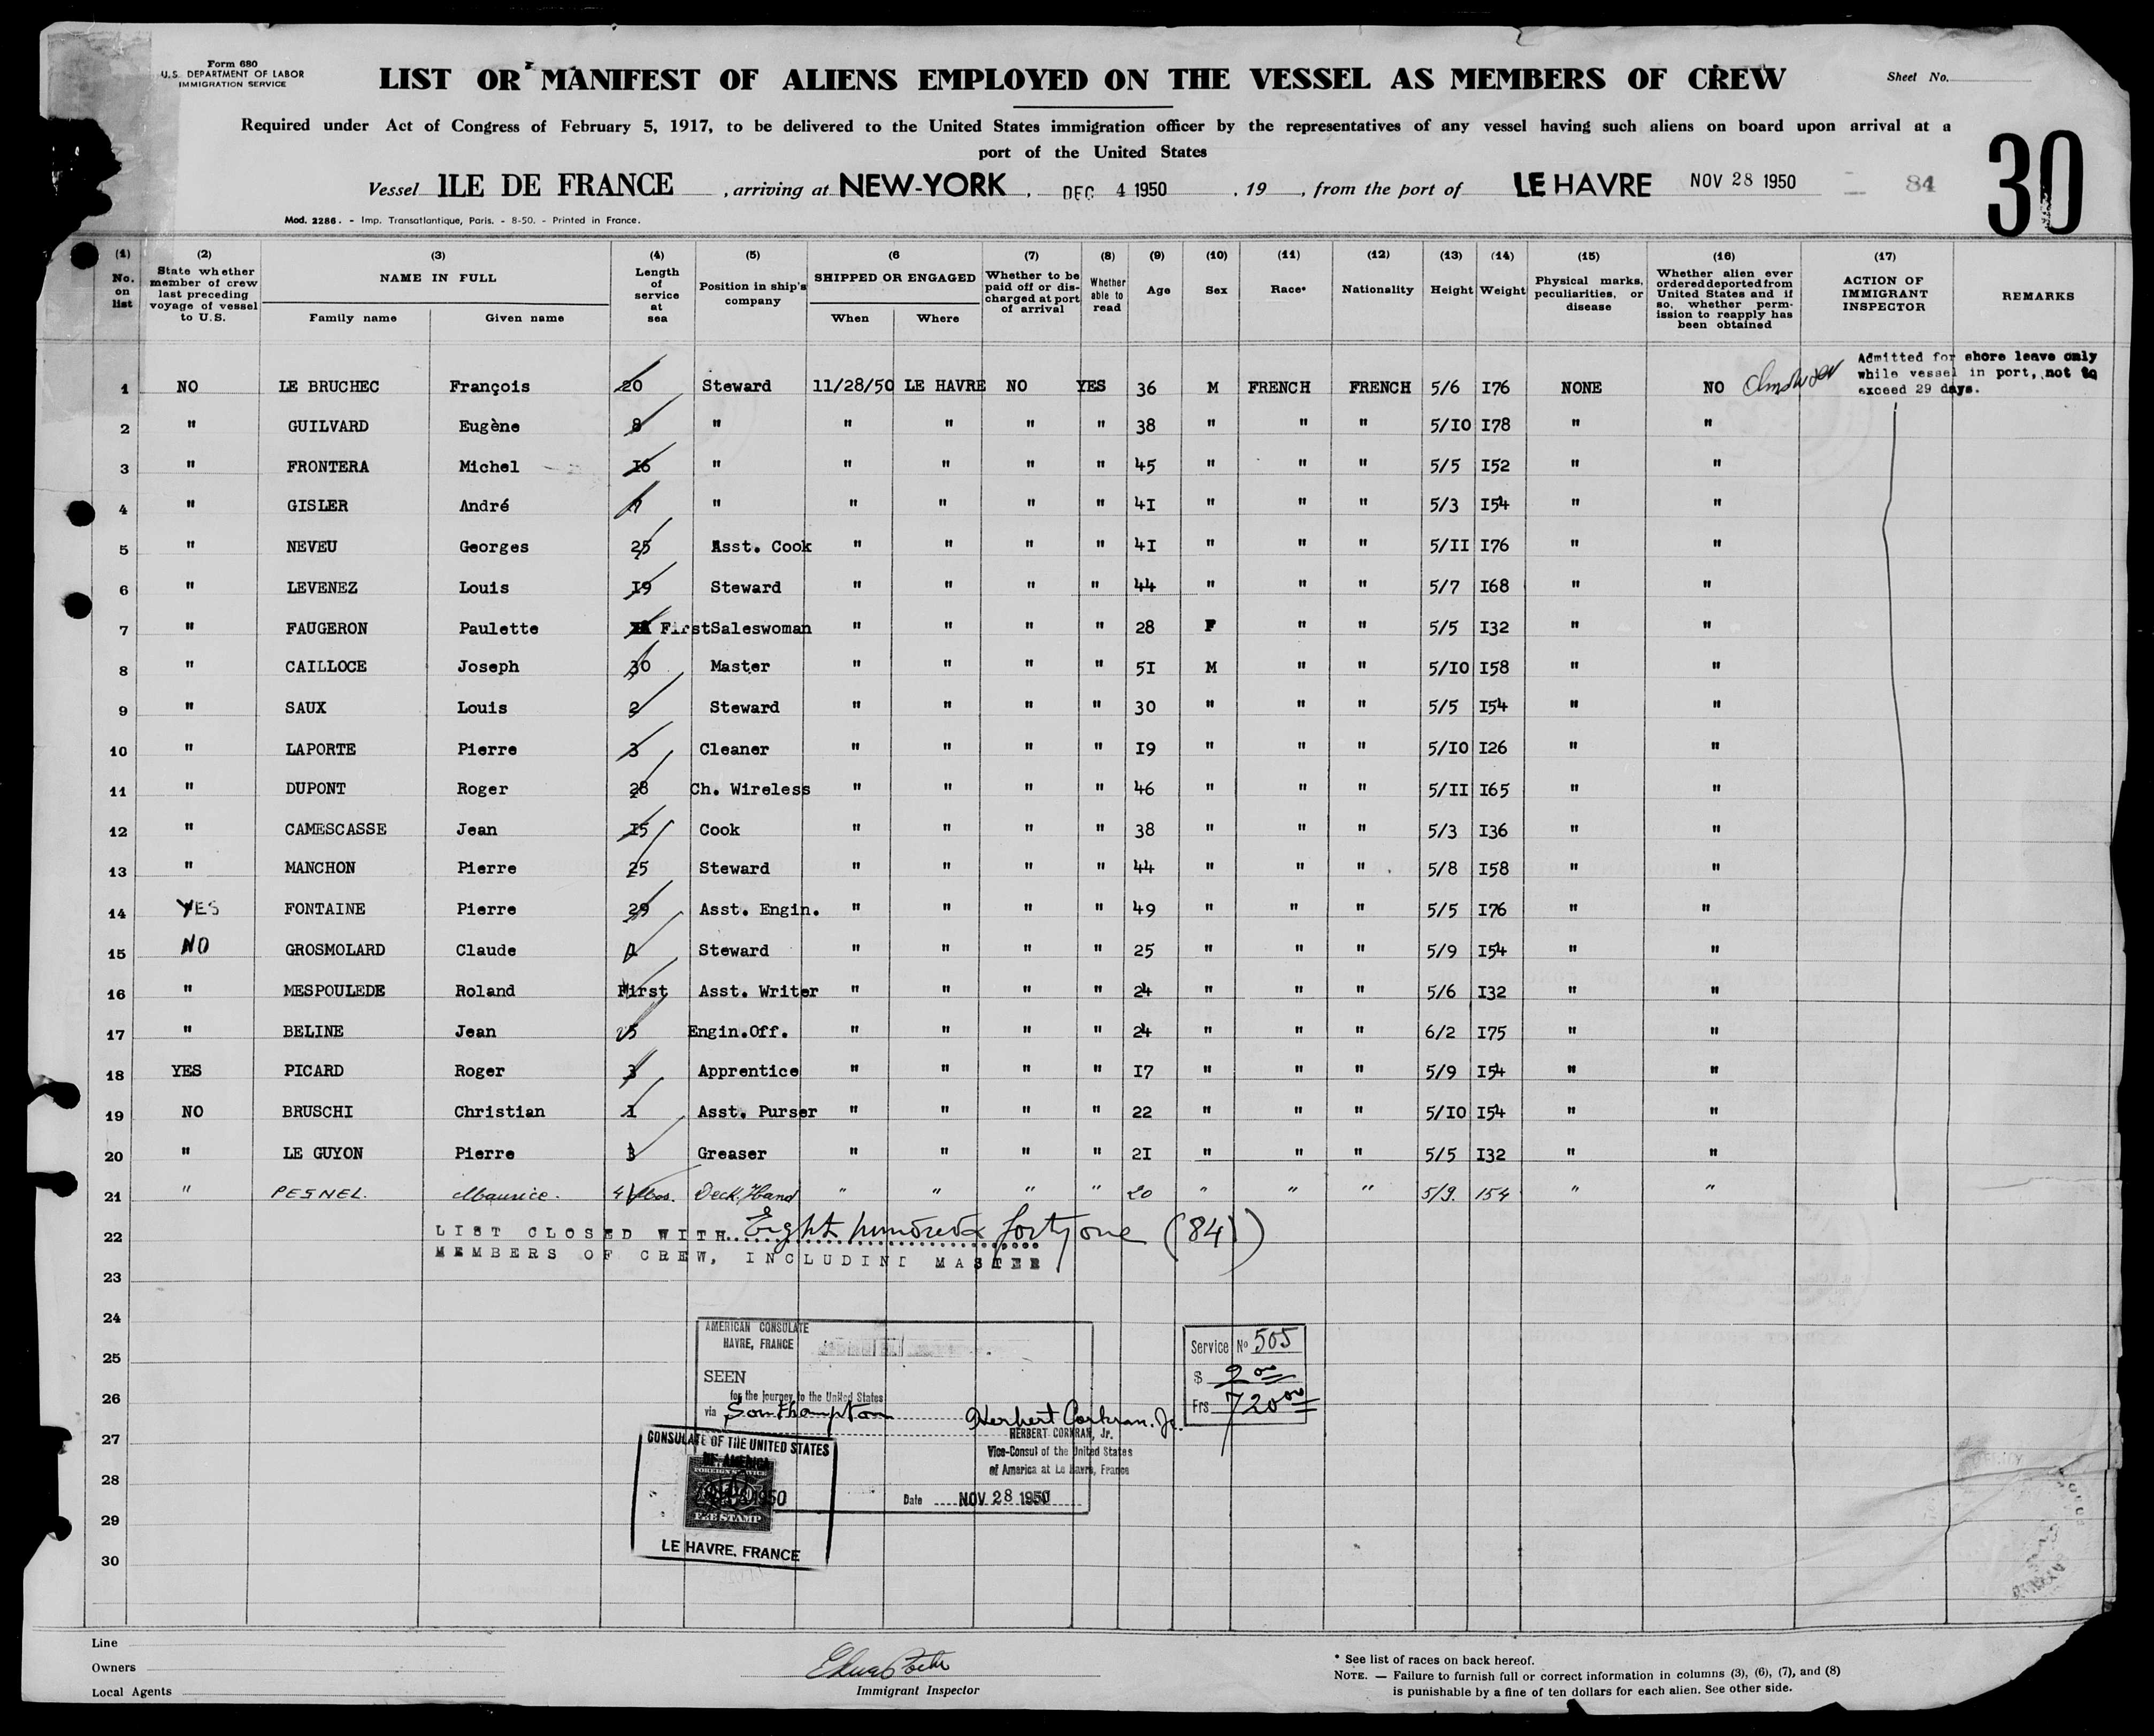 Form 680
U.S. DEPARTMENT OF LABOR
IMMIGRATION SERVICE
LIST OR MANIFEST OF ALIENS EMPLOYED ON THE VESSEL AS MEMBERS OF CREW
Sheet No.
Required under Act of Congress of February 5, 1917, to be delivered to the United States immigration officer by the representatives of any vessel having such aliens on board upon arrival at a
port of the United States
30
Vessel ILE DE FRANCE, arriving at NEW-YORK, DEC 4 1950, 19, from the port of LE HAVRE NOV 28 1950 84
Mod. 2286. - Imp. Transatlantique, Paris. - 8-50. - Printed in France.
(1) (2) (3) (4) (5) (6 (7) (8) (9) (10) (11) (12) (13) (14) (15) (16) (17)
No. on list
State whether member of crew last preceding voyage of vessel to U.S.
NAME IN FULL
Family name Given name
Length of service at sea
Position in ship's company
SHIPPED OR ENGAGED
When Where
Whether to be paid off or discharged at port of arrival
Whether able to read
Age Sex Race* Nationality Height Weight
Physical marks, peculiarities, or disease
Whether alien ever ordered deported from United States and if so, whether permission to reapply has been obtained
ACTION OF IMMIGRANT INSPECTOR
REMARKS
Admitted for shore leave only
while vessel in port, not to
exceed 29 days.
1 NO LE BRUCHEC François 20 Steward 11/28/50 LE HAVRE NO YES 36 M FRENCH FRENCH 5/6 I76 NONE NO
2 " GUILVARD Eugène 8 " " " " " 38 " " " 5/IO I78 " "
3 " FRONTERA Michel I6 " " " " " 45 " " " 5/5 I52 " "
4 " GISLER André " " " " " 4I " " " 5/3 I54 " "
5 " NEVEU Georges 25 Asst. Cook " " " " 4I " " " 5/II I76 " "
6 " LEVENEZ Louis I9 Steward " " " " 44 " " " 5/7 I68 " "
7 " FAUGERON Paulette First Saleswoman " " " " 28 F " " 5/5 I32 " "
8 " CAILLOCE Joseph 30 Master " " " " 5I M " " 5/IO I58 " "
9 " SAUX Louis 2 Steward " " " " 30 " " " 5/5 I54 " "
10 " LAPORTE Pierre 3 Cleaner " " " " I9 " " " 5/IO I26 " "
11 " DUPONT Roger 28 Ch. Wireless " " " " 46 " " " 5/II I65 " "
12 " CAMESCASSE Jean I5 Cook " " " " 38 " " " 5/3 I36 " "
13 " MANCHON Pierre 25 Steward " " " " 44 " " " 5/8 I58 " "
14 YES FONTAINE Pierre 29 Asst. Engin. " " " " 49 " " " 5/5 I76 " "
15 NO GROSMOLARD Claude Steward " " " " 25 " " " 5/9 I54 " "
16 " MESPOULEDE Roland First Asst. Writer " " " " 24 " " " 5/6 I32 " "
17 " BELINE Jean Engin.Off. " " " " 24 " " " 6/2 I75 " "
18 YES PICARD Roger 3 Apprentice " " " " I7 " " " 5/9 I54 " "
19 NO BRUSCHI Christian 1 Asst. Purser " " " " 22 " " " 5/IO I54 " "
20 " LE GUYON Pierre 3 Greaser " " " " 2I " " " 5/5 I32 " "
21 " PESNEL. Maurice. 4 Mos. Deck Hand " " " " 20 " " " 5/9. 154 " "
22 LIST CLOSED WITH Eight hundred forty one (841)
MEMBERS OF CREW, INCLUDING MASTER
23
24
25
26
27
28
29
30
AMERICAN CONSULATE
HAVRE, FRANCE
SEEN
for the journey to the United States
via Southampton
Herbert Corkran. Jr.
HERBERT CORKRAN, Jr.
Vice-Consul of the United States
of America at Le Havre, France
Date NOV 28 1950
Service No 505
$ 2.00
Frs 720.00
CONSULATE OF THE UNITED STATES
OF AMERICA
FOREIGN SERVICE
1950
FEE STAMP
LE HAVRE, FRANCE
Line
Owners
Local Agents
Immigrant Inspector
* See list of races on back hereof.
NOTE. — Failure to furnish full or correct information in columns (3), (6), (7), and (8)
is punishable by a fine of ten dollars for each alien. See other side.